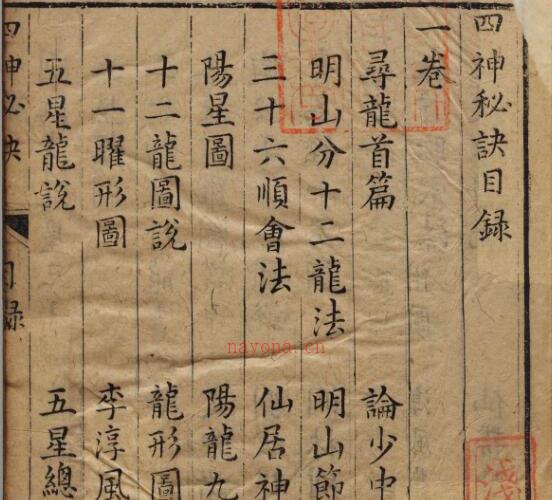 四神秘訣目録
一卷
尋龍首篇
論少中
明山分十二龍法
明山節
三十六順會法
仙居神
陽星圖
陽龍九
十二龍圖說
龍形圖
十一曜形圖
李淳風
五星龍說
五星總
四神必決
目録
nayona.cn